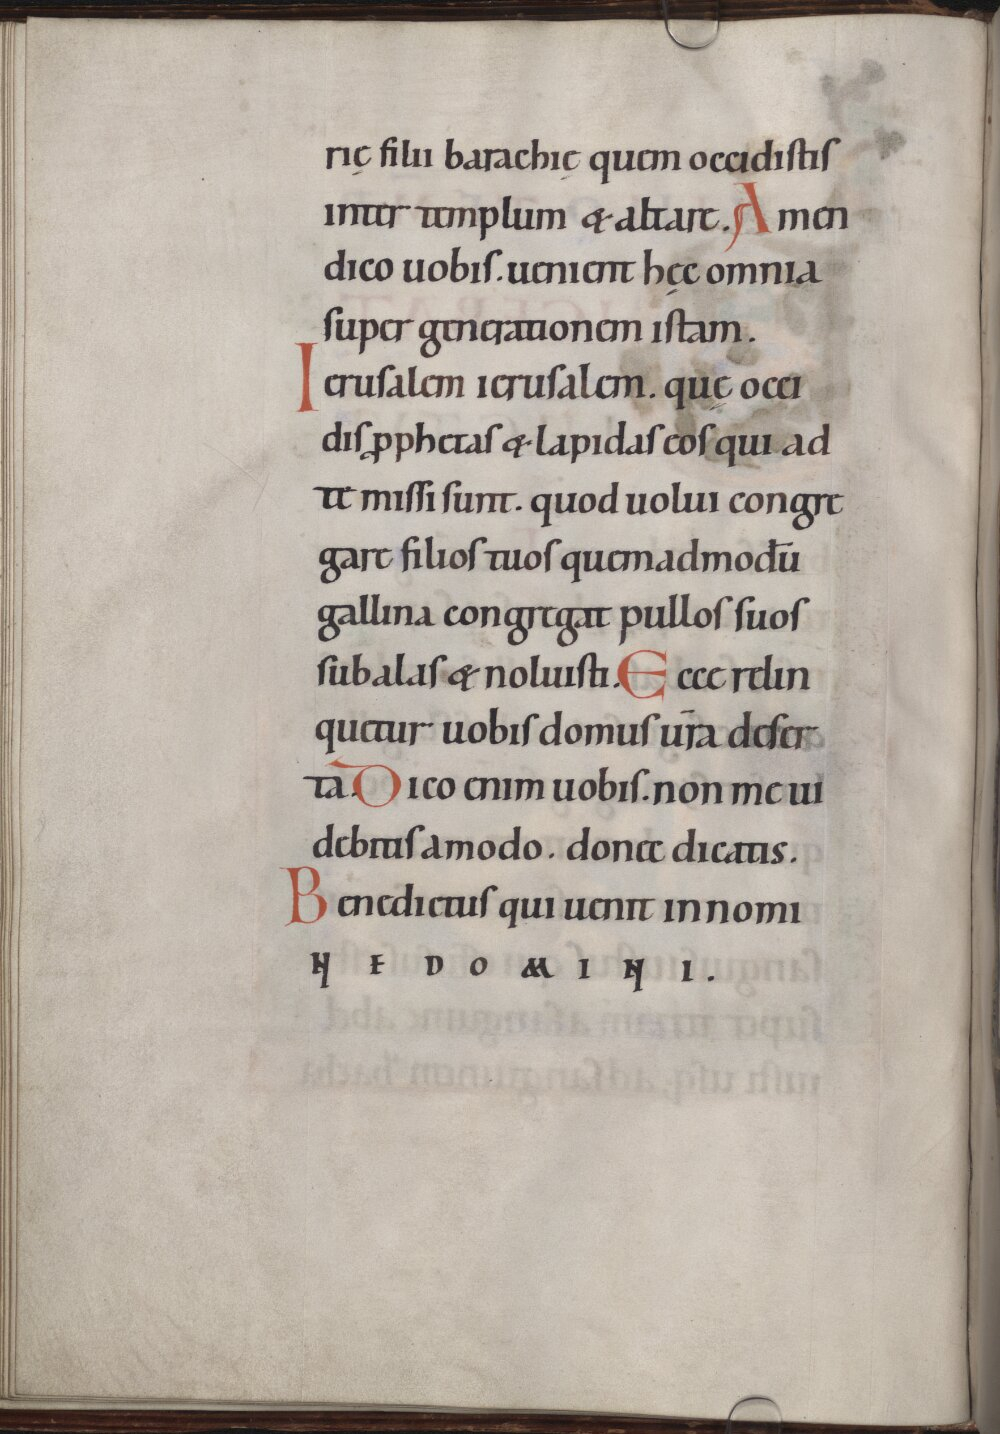 rię filii barachię quem occidistis
inter templum & altare. Amen
dico uobis. uenient hęc omnia
super generationem istam.
Ierusalem ierusalem. quę occi
dis ꝓphetas & lapidas eos qui ad
te missi sunt. quod uolui congre
gare filios tuos quemadmodū
gallina congregat pullos suos
sub alas & noluisti. Ecce relin
quetur uobis domus ur̄a deser
ta. Dico enim uobis. non me ui
debitis amodo. donec dicatis.
Benedictus qui uenit in nomi
NE DOMINI.